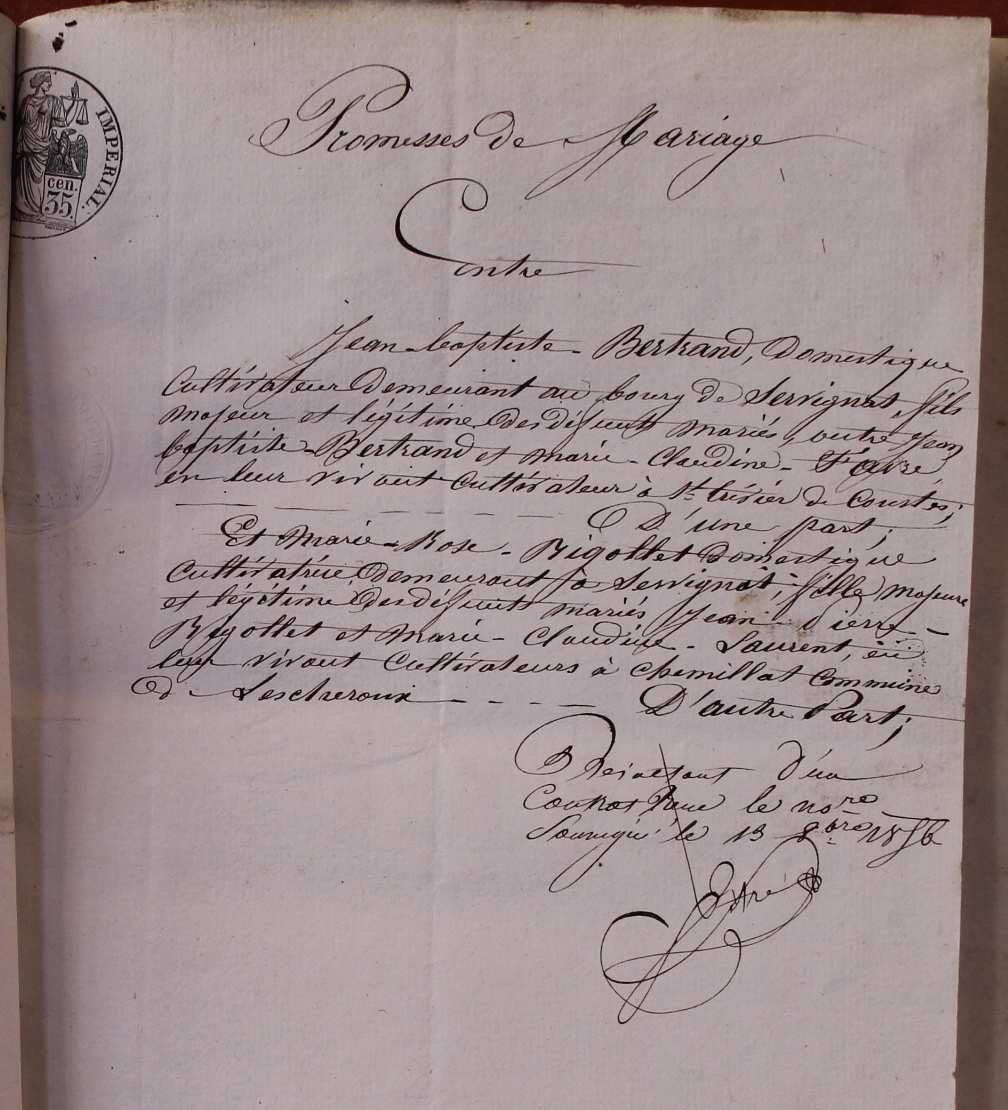 IMPERIAL.
cen.
35
Promesses de Mariage
Entre
Jean-baptiste Bertrand, Domestique
Cultivateur Demeurant au bourg de Servignat, fils
majeur et légitime des défunts mariés, outre Jean
baptiste Bertrand et marie-Claudine
en leur vivant Cultivateur à St trivier de Courtes;
D'une part;
Et Marie-Rose Rigollet Domestique
Cultivatrice Demeurant à Servignat; fille majeure
et légitime des défunts mariés Jean-Pierre
Rigollet et Marie-Claudine Laurent, en
leur vivant Cultivateurs à Chemillat Commune
de Lescheroux D'autre Part;
Résultant d'un
Contrat Reçu le nore
Soussigné le 13 8bre 1856